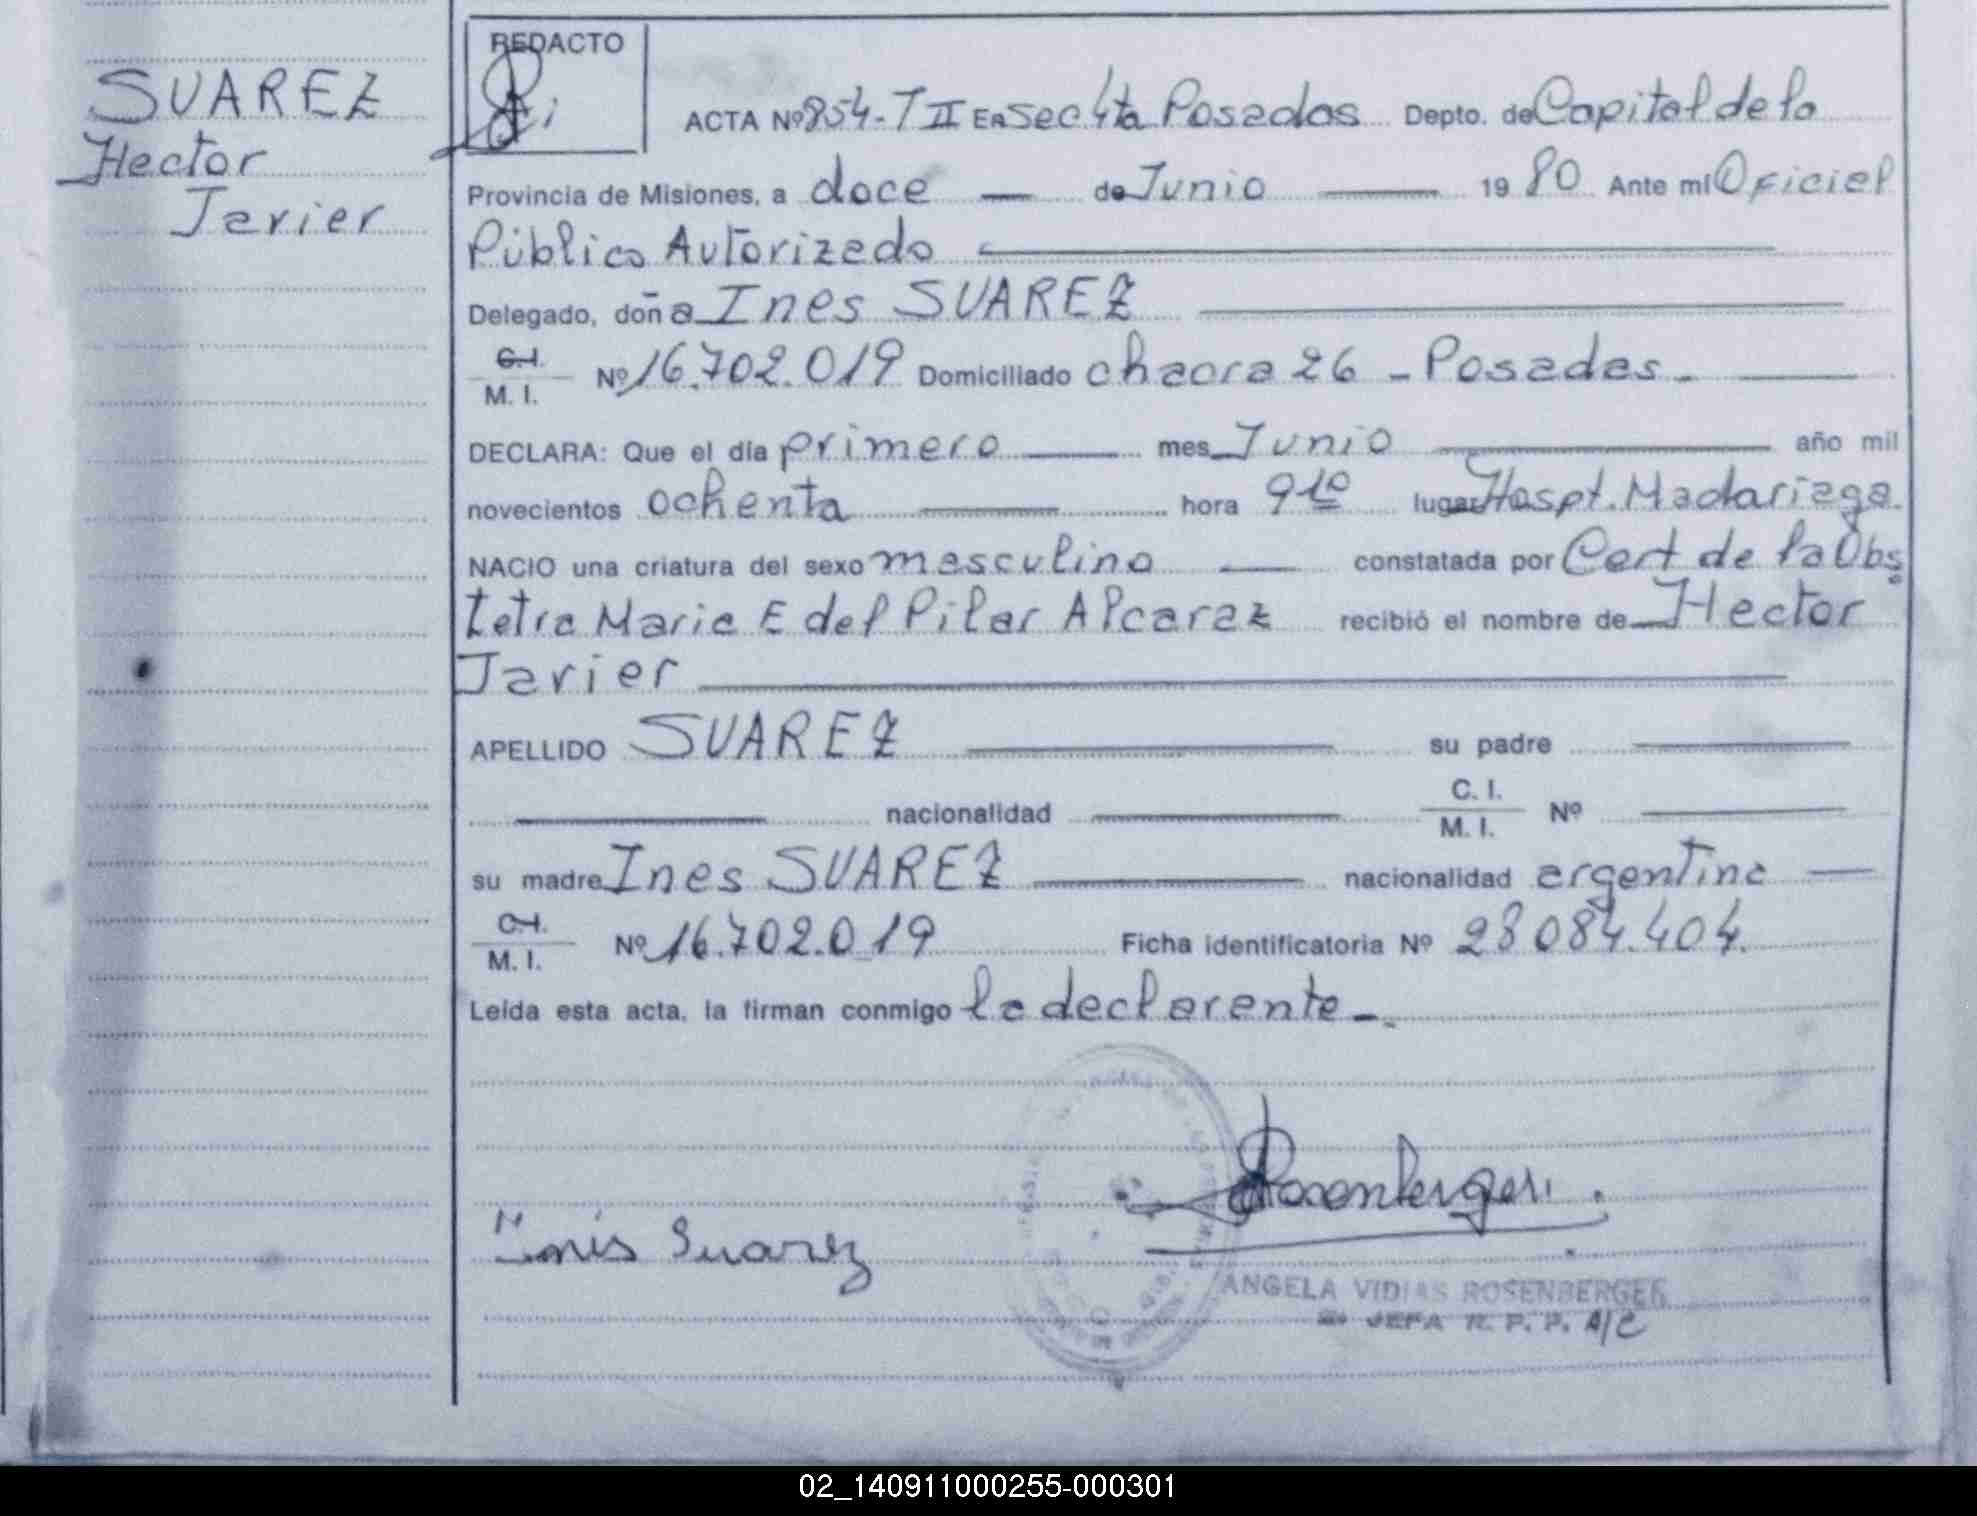 SUAREZ
Hector
Javier
REDACTO
ACTA Nº 854-T II En Sec 4ta Posadas Depto. de Capital de la
Provincia de Misiones, a doce — de Junio — 1980 Ante mí Oficial
Público Autorizado —
Delegado, doña Ines SUAREZ —
C.I.
M. I. Nº 16.702.019 Domiciliado chacra 26 - Posadas - —
DECLARA: Que el día primero — mes Junio — año mil
novecientos ochenta — hora 9 10 lugar Hospt. Madariaga.
NACIO una criatura del sexo masculino — constatada por Cert de la Obs
tetra Maria E del Pilar Alcaraz recibió el nombre de Hector
Javier —
APELLIDO SUAREZ — su padre —
— nacionalidad — C. I.
M. I. Nº —
su madre Ines SUAREZ — nacionalidad argentina —
C.I.
M. I. Nº 16.702.019 Ficha identificatoria Nº 28 084.404.
Leída esta acta, la firman conmigo la declarante -.
Rosenberger
Inés Suarez
ANGELA VIDIAS ROSENBERGER
JEFA R. P. P. A/C
02_140911000255-000301